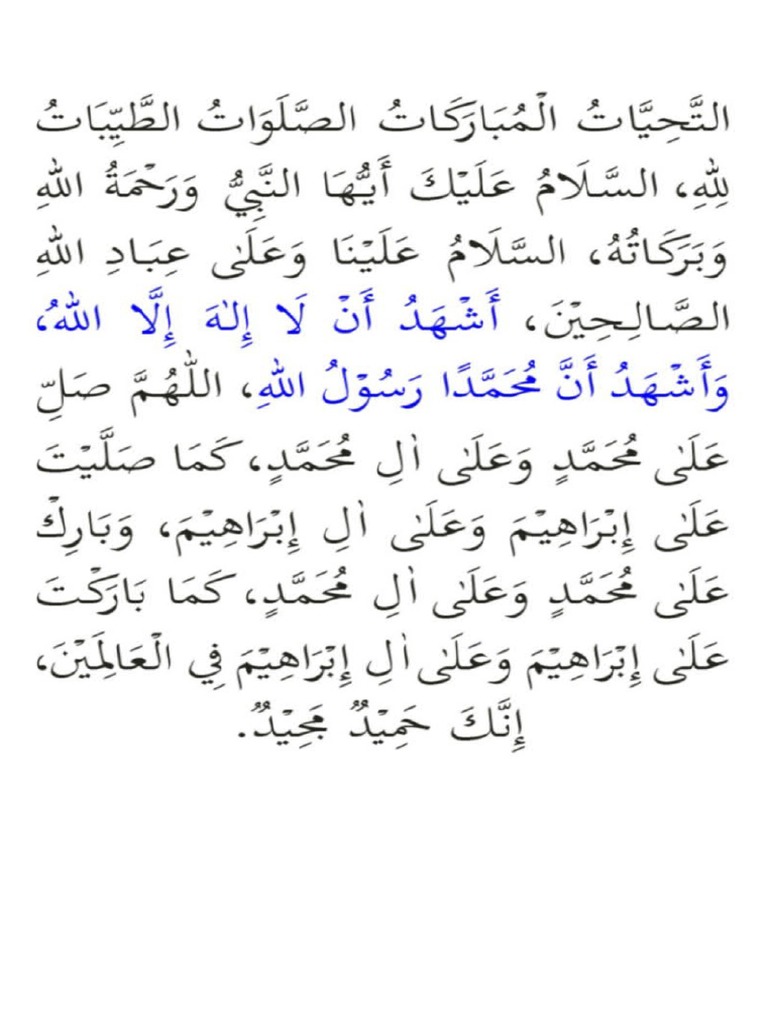 التَّحِيَّاتُ الْمُبَارَكَاتُ الصَّلَوَاتُ الطَّيِّبَاتُ
لِلّٰهِ، السَّلَامُ عَلَيْكَ أَيُّهَا النَّبِيُّ وَرَحْمَةُ اللهِ
وَبَرَكَاتُهُ، السَّلَامُ عَلَيْنَا وَعَلَى عِبَادِ اللهِ
الصَّالِحِيْنَ، أَشْهَدُ أَنْ لَا إِلٰهَ إِلَّا اللهُ،
وَأَشْهَدُ أَنَّ مُحَمَّدًا رَسُوْلُ اللهِ، اللّٰهُمَّ صَلِّ
عَلَى مُحَمَّدٍ وَعَلَى اٰلِ مُحَمَّدٍ، كَمَا صَلَّيْتَ
عَلَى إِبْرَاهِيْمَ وَعَلَى اٰلِ إِبْرَاهِيْمَ، وَبَارِكْ
عَلَى مُحَمَّدٍ وَعَلَى اٰلِ مُحَمَّدٍ، كَمَا بَارَكْتَ
عَلَى إِبْرَاهِيْمَ وَعَلَى اٰلِ إِبْرَاهِيْمَ فِي الْعَالَمِيْنَ،
إِنَّكَ حَمِيْدٌ مَجِيْدٌ.